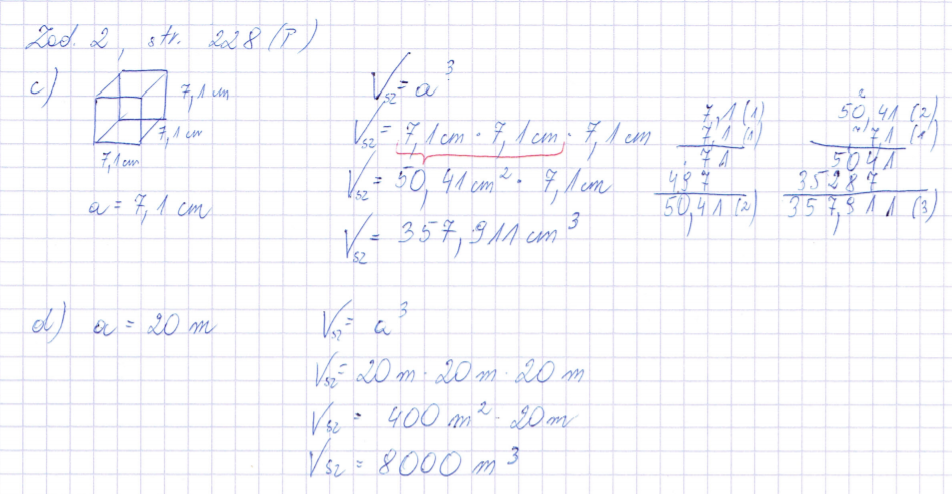 Zad. 2, str. 228 (P)
c)
7,1 cm
7,1 cm
7,1 cm
a = 7,1 cm
Vsz = a³
Vsz = 7,1 cm · 7,1 cm · 7,1 cm
Vsz = 50,41 cm² · 7,1 cm
Vsz = 357,911 cm³
7,1 (1)
7,1 (1)
71
497
50,41 (2)
2
50,41 (2)
7,1 (1)
5041
35287
357,911 (3)
d) a = 20 m
Vsz = a³
Vsz = 20 m · 20 m · 20 m
Vsz = 400 m² · 20 m
Vsz = 8000 m³